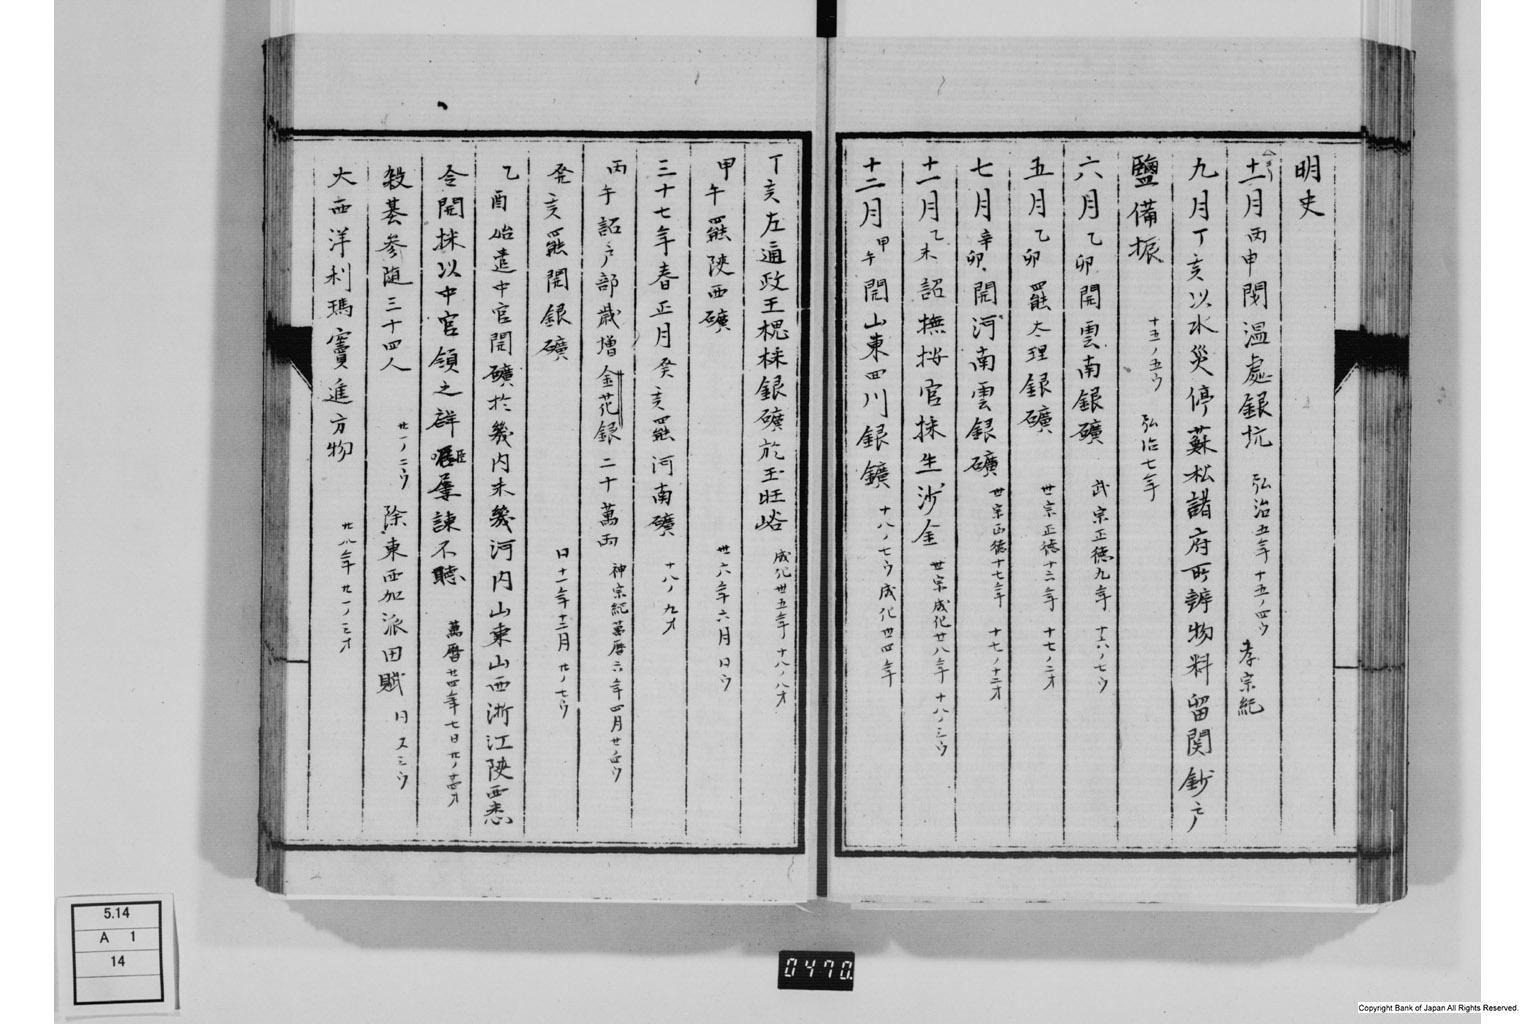 明史
十二月丙申閉温處銀坑 弘治五年 十五ノ四ウ 孝宗紀
九月丁亥以水災停蘇松諸府所辨物料留関鈔戸
鹽備振 十五ノ五ウ 弘治七年
六月乙卯開雲南銀礦 武宗正徳九年 十六ノ七ウ
五月乙卯罷大理銀礦 世宗正徳十六年 十七ノ二オ
七月辛卯開河南雲銀礦 世宗正徳十七年 十七ノ十二オ
十一月乙未詔撫按官採生沙金 世宗成化廿八年 十八ノ三ウ
十二月甲午開山東四川銀鑛 十八ノ七ウ 成化卅四年
丁亥左通政王槐採銀礦於玉旺峪 成化卅五年 十八ノ八オ
甲午罷陜西礦 卅六年六月 日ウ
三十七年春正月癸亥罷河南礦 十八ノ九オ
丙午詔戸部歳増金花銀二十萬両 神宗紀萬暦六年四月 廿ノ五ウ
癸亥罷開銀礦 日十一年十二月 廿ノ七ウ
乙酉始遣中官開礦於畿内未幾河内山東山西浙江陜西悉
令開採以中官領之群臣屢諫不聴 萬暦廿四年七日 廿ノ十四オ
殺綦參随三十四人 廿一ノ二ウ 除東西加派田賦 日又三ウ
大西洋利瑪竇進方物 廿八年 廿一ノ三オ
5.14
A 1
14
0470.
Copyright Bank of Japan All Rights Reserved.